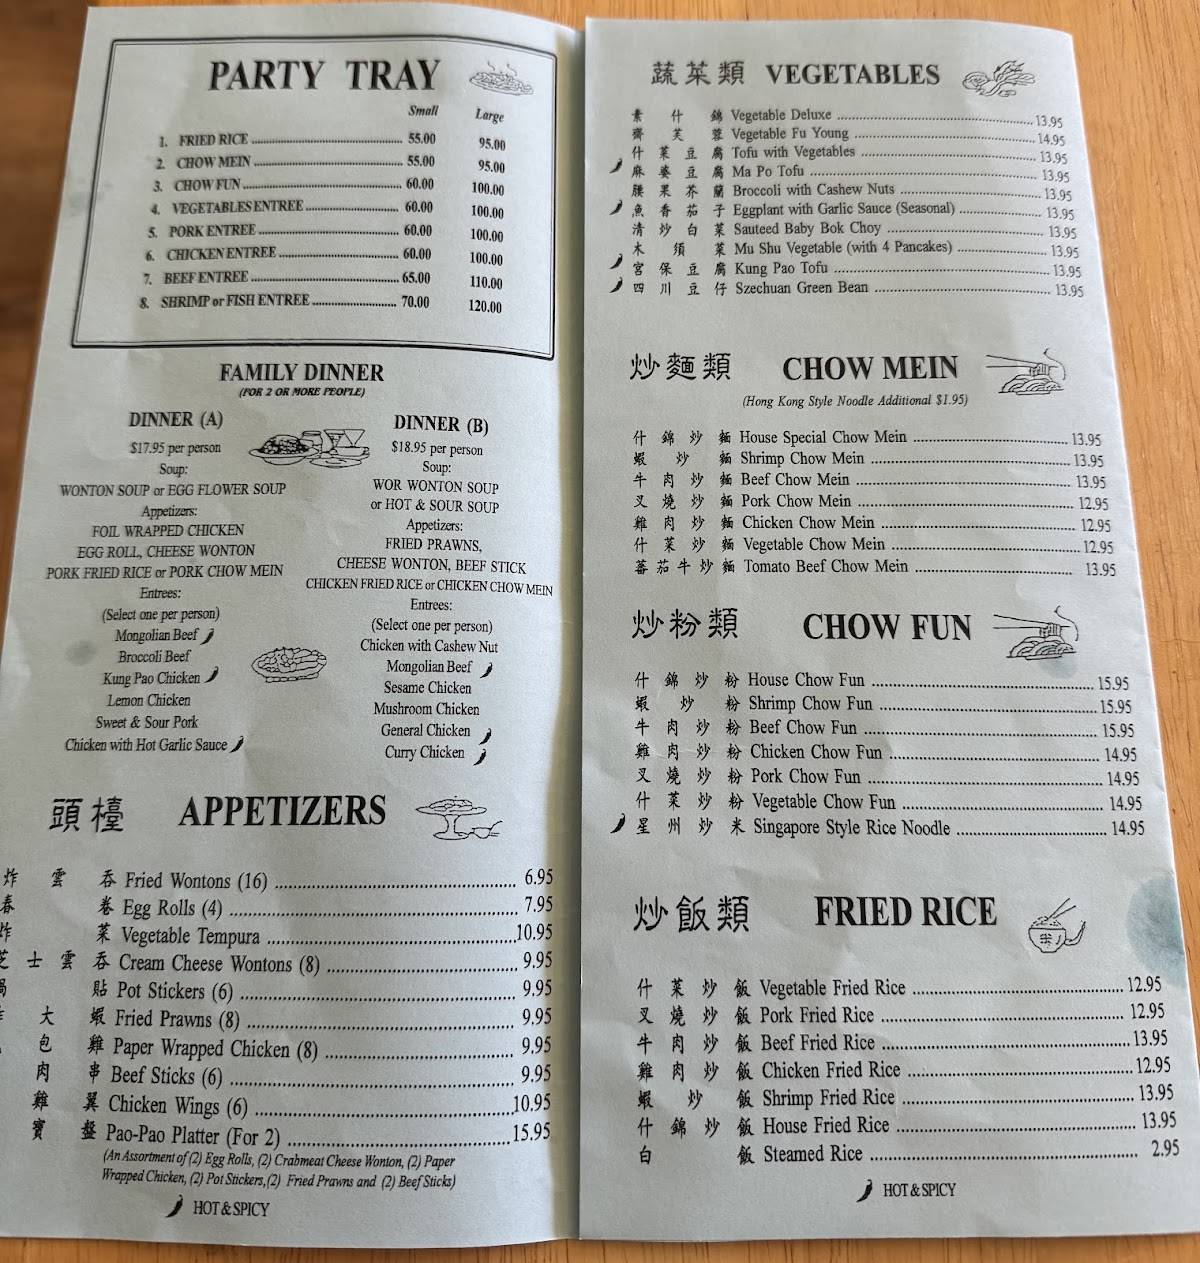 PARTY TRAY
Small Large
1. FRIED RICE 55.00 95.00
2. CHOW MEIN 55.00 95.00
3. CHOW FUN 60.00 100.00
4. VEGETABLES ENTREE 60.00 100.00
5. PORK ENTREE 60.00 100.00
6. CHICKEN ENTREE 60.00 100.00
7. BEEF ENTREE 65.00 110.00
8. SHRIMP or FISH ENTREE 70.00 120.00
FAMILY DINNER
(FOR 2 OR MORE PEOPLE)
DINNER (A)
$17.95 per person
Soup:
WONTON SOUP or EGG FLOWER SOUP
Appetizers:
FOIL WRAPPED CHICKEN
EGG ROLL, CHEESE WONTON
PORK FRIED RICE or PORK CHOW MEIN
Entrees:
(Select one per person)
Mongolian Beef
Broccoli Beef
Kung Pao Chicken
Lemon Chicken
Sweet & Sour Pork
Chicken with Hot Garlic Sauce
DINNER (B)
$18.95 per person
Soup:
WOR WONTON SOUP
or HOT & SOUR SOUP
Appetizers:
FRIED PRAWNS,
CHEESE WONTON, BEEF STICK
CHICKEN FRIED RICE or CHICKEN CHOW MEIN
Entrees:
(Select one per person)
Chicken with Cashew Nut
Mongolian Beef
Sesame Chicken
Mushroom Chicken
General Chicken
Curry Chicken
頭檯 APPETIZERS
炸雲吞 Fried Wontons (16) 6.95
春卷 Egg Rolls (4) 7.95
炸菜 Vegetable Tempura 10.95
芝士雲吞 Cream Cheese Wontons (8) 9.95
鍋貼 Pot Stickers (6) 9.95
炸大蝦 Fried Prawns (8) 9.95
包雞 Paper Wrapped Chicken (8) 9.95
肉串 Beef Sticks (6) 9.95
雞翼 Chicken Wings (6) 10.95
寶盤 Pao-Pao Platter (For 2) 15.95
(An Assortment of (2) Egg Rolls, (2) Crabmeat Cheese Wonton, (2) Paper
Wrapped Chicken, (2) Pot Stickers, (2) Fried Prawns and (2) Beef Sticks)
HOT & SPICY
蔬菜類 VEGETABLES
素什錦 Vegetable Deluxe 13.95
齋芙蓉 Vegetable Fu Young 14.95
什菜豆腐 Tofu with Vegetables 13.95
麻婆豆腐 Ma Po Tofu 13.95
腰果芥蘭 Broccoli with Cashew Nuts 13.95
魚香茄子 Eggplant with Garlic Sauce (Seasonal) 13.95
清炒白菜 Sauteed Baby Bok Choy 13.95
木須菜 Mu Shu Vegetable (with 4 Pancakes) 13.95
宮保豆腐 Kung Pao Tofu 13.95
四川豆仔 Szechuan Green Bean 13.95
炒麵類 CHOW MEIN
(Hong Kong Style Noodle Additional $1.95)
什錦炒麵 House Special Chow Mein 13.95
蝦炒麵 Shrimp Chow Mein 13.95
牛肉炒麵 Beef Chow Mein 13.95
叉燒炒麵 Pork Chow Mein 12.95
雞肉炒麵 Chicken Chow Mein 12.95
什菜炒麵 Vegetable Chow Mein 12.95
蕃茄牛炒麵 Tomato Beef Chow Mein 13.95
炒粉類 CHOW FUN
什錦炒粉 House Chow Fun 15.95
蝦炒粉 Shrimp Chow Fun 15.95
牛肉炒粉 Beef Chow Fun 15.95
雞肉炒粉 Chicken Chow Fun 14.95
叉燒炒粉 Pork Chow Fun 14.95
什菜炒粉 Vegetable Chow Fun 14.95
星州炒米 Singapore Style Rice Noodle 14.95
炒飯類 FRIED RICE
什菜炒飯 Vegetable Fried Rice 12.95
叉燒炒飯 Pork Fried Rice 12.95
牛肉炒飯 Beef Fried Rice 13.95
雞肉炒飯 Chicken Fried Rice 12.95
蝦炒飯 Shrimp Fried Rice 13.95
什錦炒飯 House Fried Rice 13.95
白飯 Steamed Rice 2.95
HOT & SPICY